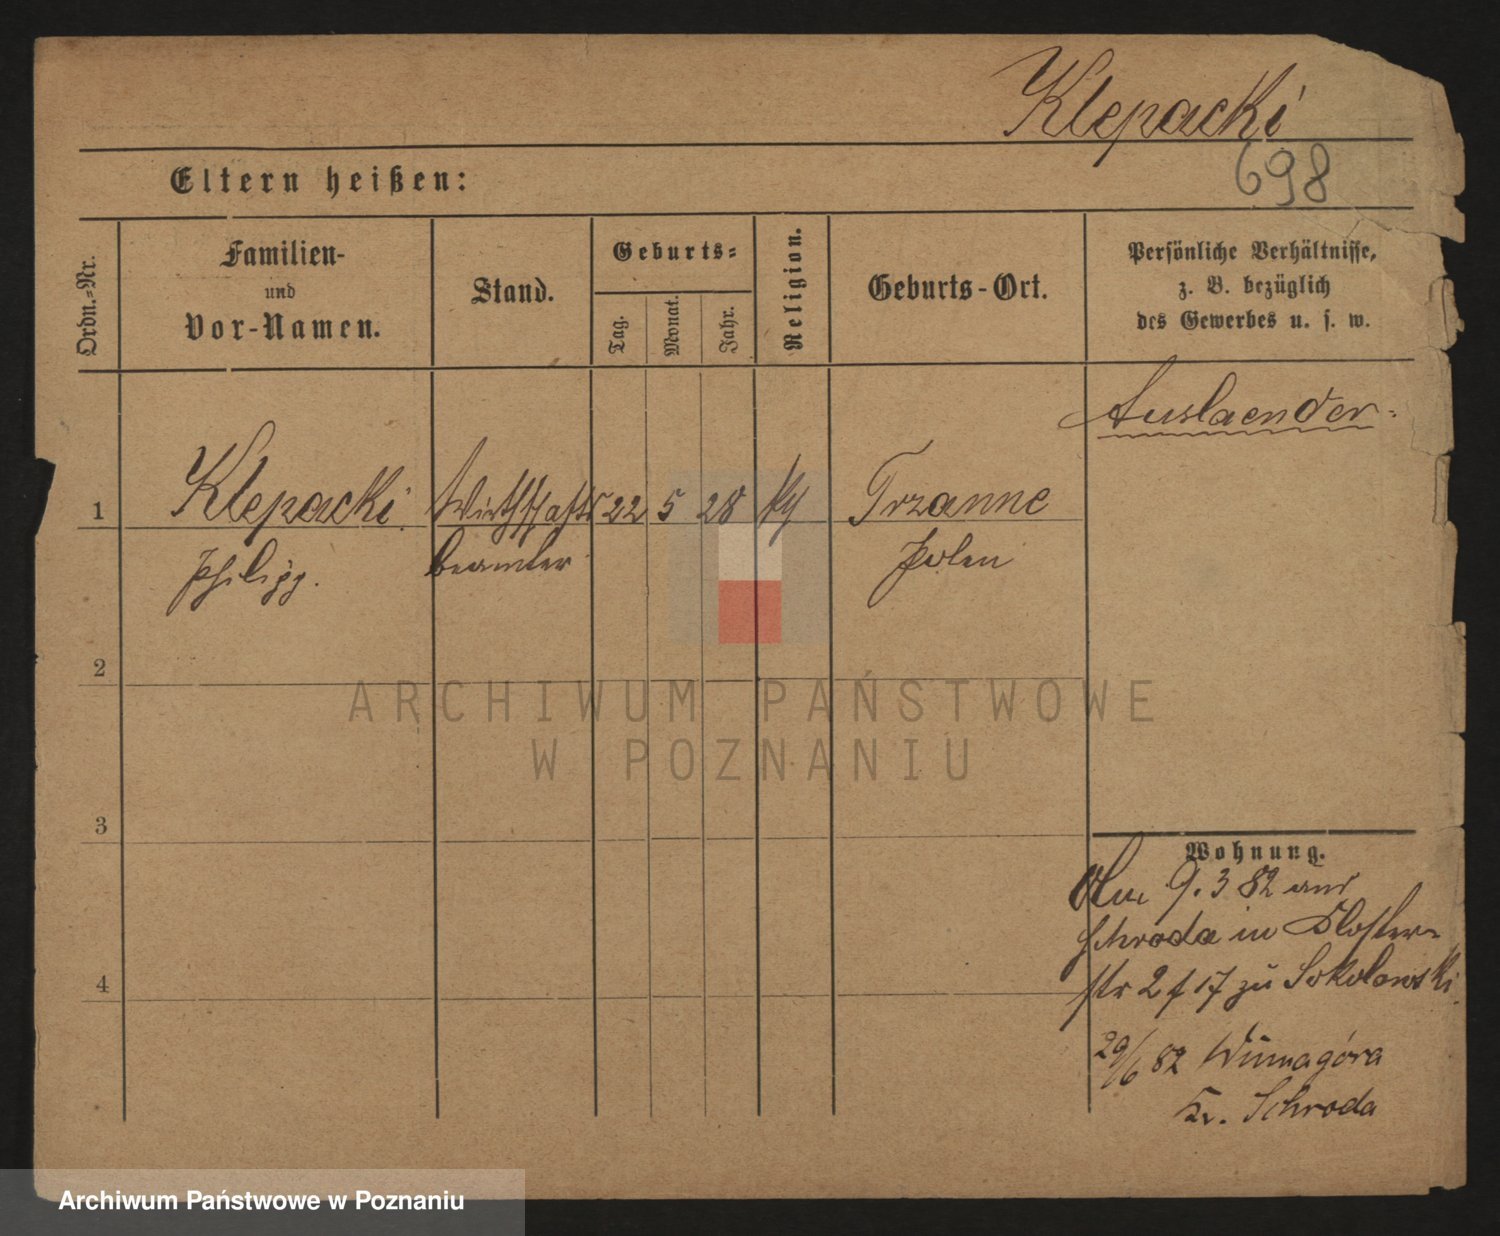 Klepacki
698
Eltern heißen:
Ordn.-Nr.
Familien-
und
Vor-Namen.
Stand.
Geburts-
Tag.
Monat.
Jahr.
Religion.
Geburts-Ort.
Persönliche Verhältnisse,
z. B. bezüglich
des Gewerbes u. s. w.
Auslaender.
1 Klepacki Wirthschafts 22 5 28 Trzanne
Philipp. beamter Polen
2
3
4
Wohnung.
9. 3 82 aus
Schroda in Kloster-
str 2 f 17 zu Sokolowski
29/6 82 Winnagóra
Kr. Schroda
ARCHIWUM PAŃSTWOWE
W POZNANIU
Archiwum Państwowe w Poznaniu